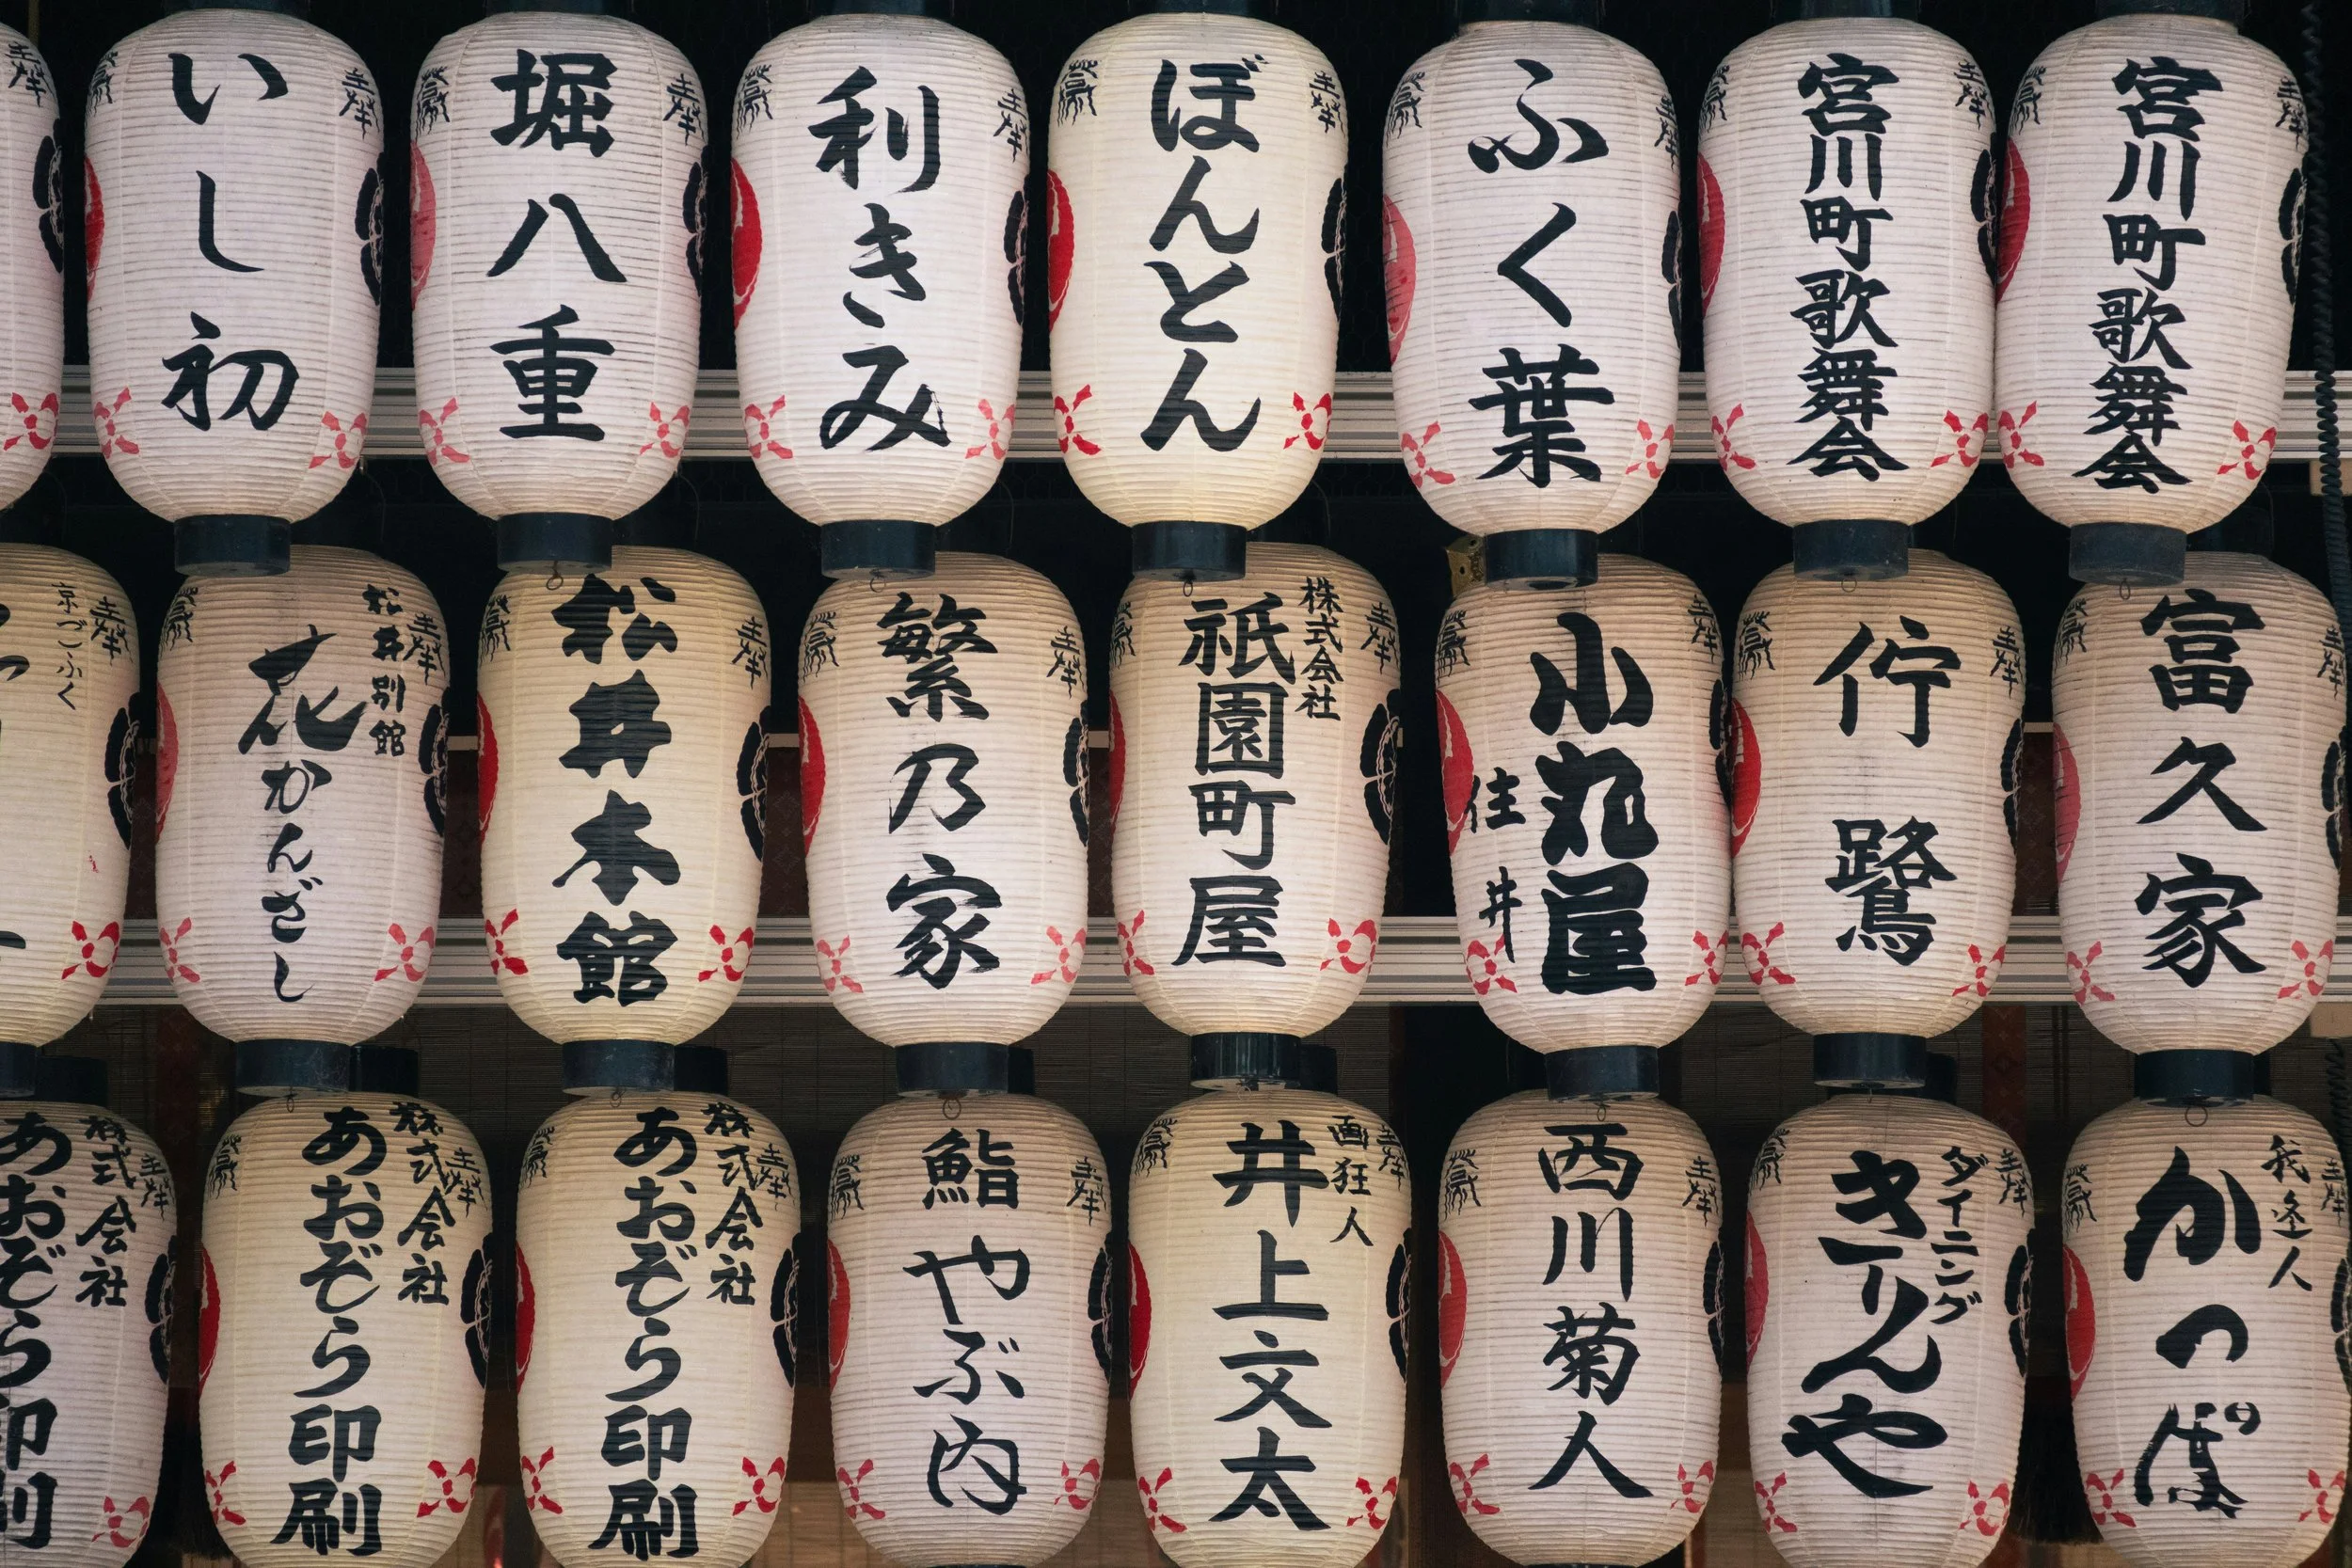 いし初
堀八重
利きみ
ぼんとん
ふく葉
宮川町歌舞会
宮川町歌舞会
京ごふく
松井別館
花かんざし
松井本館
繁乃家
株式会社
祇園町屋
小丸屋
住井
佇鷺
富久家
株式会社
あおぞら印刷
株式会社
あおぞら印刷
株式会社
あおぞら印刷
鮨
やぶ内
画狂人
井上文太
西川菊人
ダイニング
きりんや
かっぽ